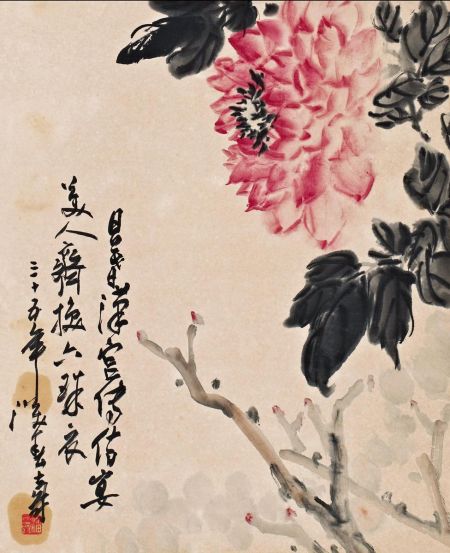 日暮漢宮傳侍宴
美人齊換六銖衣
三十五年